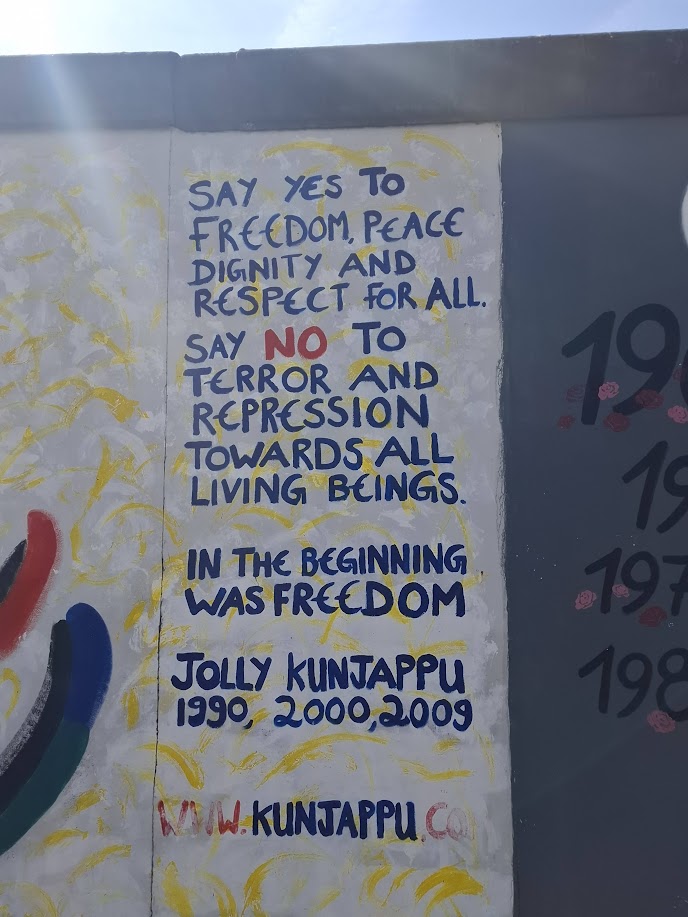 SAY YES TO
FREEDOM, PEACE
DIGNITY AND
RESPECT FOR ALL.
SAY NO TO
TERROR AND
REPRESSION
TOWARDS ALL
LIVING BEINGS.
IN THE BEGINNING
WAS FREEDOM
JOLLY KUNJAPPU
1990, 2000, 2009
WWW.KUNJAPPU.CO